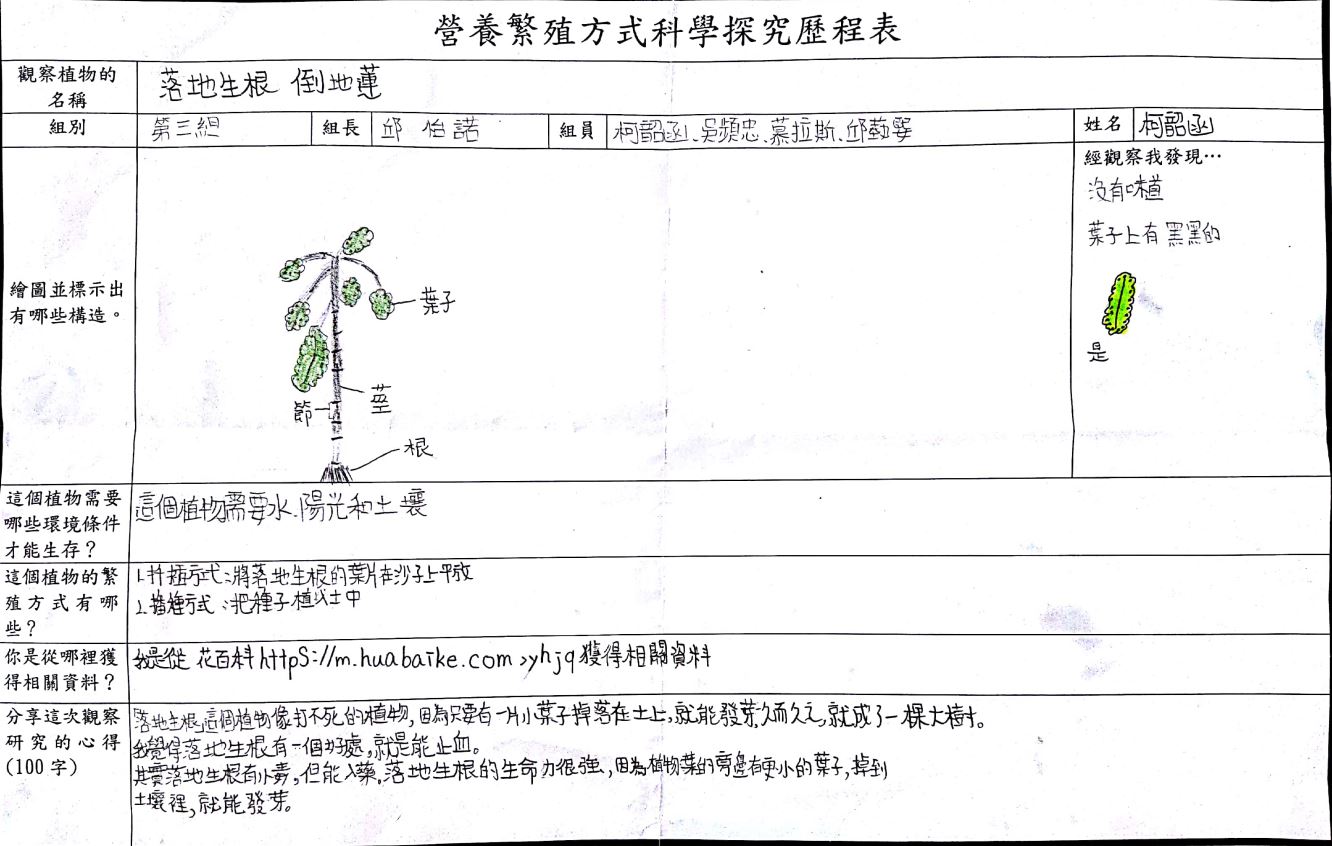 營養繁殖方式科學探究歷程表
觀察植物的
名稱
落地生根 倒地蓮
組別
第三組
組長
邱伯諾
組員
柯韶函、吳頻忠、慕拉斯、邱
姓名
柯韶函
繪圖並標示出
有哪些構造。
葉子
莖
節
根
經觀察我發現…
沒有味道
葉子上有黑黑的
是
這個植物需要
哪些環境條件
才能生存?
這個植物需要水、陽光和土壤
這個植物的繁
殖方式有哪
些?
1.扦插方式:將落地生根的葉片在沙子上平放
2.播種方式:把種子植以土中
你是從哪裡獲
得相關資料?
我是從 花百科 https://m.huabaike.com>yhjq獲得相關資料
分享這次觀察
研究的心得
(100字)
落地生根這個植物像打不死的植物,因為只要有一片小葉子掉落在土上,就能發芽久而久之,就成了一棵大樹。
我覺得落地生根有一個好處,就是能止血。
其實落地生根有小毒,但能入藥。落地生根的生命力很強,因為植物葉的旁邊有更小的葉子,掉到
土壤裡,就能發芽。